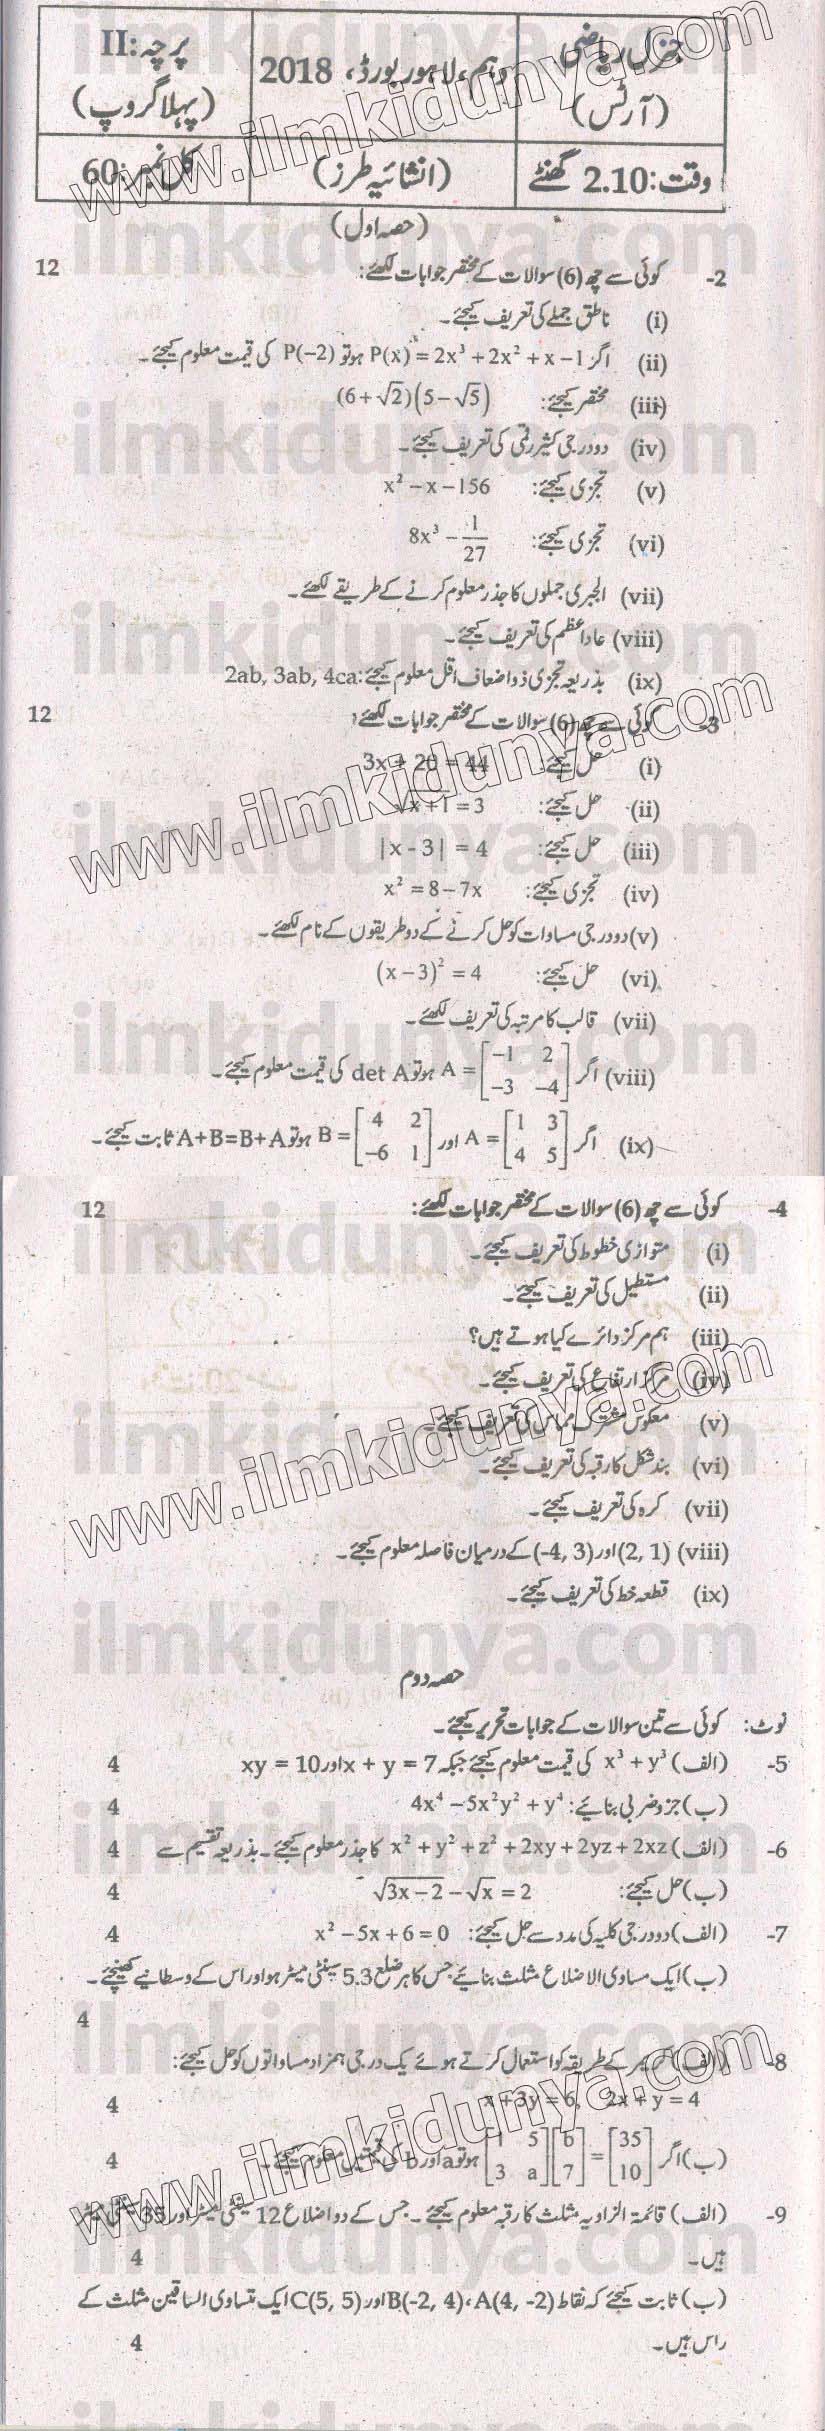 جنرل ریاضی (آرٹس)
دہم، لاہور بورڈ، 2018
پرچہ: II (پہلا گروپ)
وقت: 2.10 گھنٹے
(انشائیہ طرز)
کل نمبر: 60
(حصہ اول)
2- کوئی سے چھ (6) سوالات کے مختصر جوابات لکھئے: 12
(i) ناطق جملے کی تعریف کیجئے۔
(ii) اگر P(x) = 2x³ + 2x² + x − 1 ہو تو P(−2) کی قیمت معلوم کیجئے۔
(iii) مختصر کیجئے: (6 + √2)(5 − √5)
(iv) دو درجی کثیر رقمی کی تعریف کیجئے۔
(v) تجزی کیجئے: x² − x − 156
(vi) تجزی کیجئے: 8x³ − 1/27
(vii) الجبری جملوں کا جذر معلوم کرنے کے طریقے لکھئے۔
(viii) عاد اعظم کی تعریف کیجئے۔
(ix) بذریعہ تجزی ذواضعاف اقل معلوم کیجئے: 2ab, 3ab, 4ca
3- کوئی سے چھ (6) سوالات کے مختصر جوابات لکھئے: 12
(i) حل کیجئے: 3x + 20 = 44
(ii) حل کیجئے: √x+1 = 3
(iii) حل کیجئے: |x - 3| = 4
(iv) تجزی کیجئے: x² = 8 − 7x
(v) دو درجی مساوات کو حل کرنے کے دو طریقوں کے نام لکھئے۔
(vi) حل کیجئے: (x − 3)² = 4
(vii) قالب کا مرتبہ کی تعریف لکھئے۔
(viii) اگر A = [−1 2 −3 −4] ہو تو det A کی قیمت معلوم کیجئے۔
(ix) اگر A = [1 3 4 5] اور B = [4 2 −6 1] ہو تو A+B=B+A ثابت کیجئے۔
4- کوئی سے چھ (6) سوالات کے مختصر جوابات لکھئے: 12
(i) متوازی خطوط کی تعریف کیجئے۔
(ii) مستطیل کی تعریف کیجئے۔
(iii) ہم مرکز دائرے کیا ہوتے ہیں؟
(iv) مرکز ارتفاع کی تعریف کیجئے۔
(v) معکوس مشترک مماس کی تعریف کیجئے۔
(vi) بند شکل کا رقبہ کی تعریف کیجئے۔
(vii) کرہ کی تعریف کیجئے۔
(viii) (2, 1) اور (-4, 3) کے درمیان فاصلہ معلوم کیجئے۔
(ix) قطعہ خط کی تعریف کیجئے۔
حصہ دوم
نوٹ: کوئی سے تین سوالات کے جوابات تحریر کیجئے۔
5- (الف) x³ + y³ کی قیمت معلوم کیجئے جبکہ x + y = 7 اور xy = 10 4
(ب) جزو ضربی بنائیے: 4x⁴ − 5x²y² + y⁴ 4
6- (الف) x² + y² + z² + 2xy + 2yz + 2xz کا جذر معلوم کیجئے۔ بذریعہ تقسیم سے 4
(ب) حل کیجئے: √3x−2 − √x = 2 4
7- (الف) دو درجی کلیہ کی مدد سے حل کیجئے: x² − 5x + 6 = 0 4
(ب) ایک مساوی الاضلاع مثلث بنائیے جس کا ہر ضلع 5.3 سینٹی میٹر ہو اور اس کے وسطانیے کھینچئے۔
4
8- (الف) کریمر کے طریقہ کو استعمال کرتے ہوئے یک درجی ہمزاد مساواتوں کو حل کیجئے:
x + 3y = 6, 2x + y = 4 4
(ب) اگر [1 5 3 a] [b 7] = [35 10] ہو تو a اور b کی قیمتیں معلوم کیجئے۔ 4
9- (الف) قائمۃ الزاویہ مثلث کا رقبہ معلوم کیجئے۔ جس کے دو اضلاع 12 سینٹی میٹر اور 35 سینٹی میٹر
ہیں۔ 4
(ب) ثابت کیجئے کہ نقاط A(4, -2)، B(-2, 4) اور C(5, 5) ایک متساوی الساقین مثلث کے
راس ہیں۔ 4
www.ilmkidunya.com
ilmkidunya.com